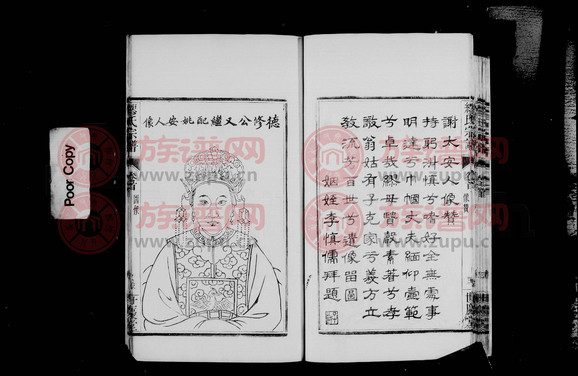 謝太安人像贊
持躬淑慎兮嗜好全無處事
明達兮巾幗丈夫緬仰壼範
兮卓哉
敬翁姑有子克家兮義方立
教流芳百世兮遺像留圖
姻姪李慎儒拜題
德修公又繼配姚安人像
氏宗譜
卷首
Poor Copy
族谱网
www.zupu.cn